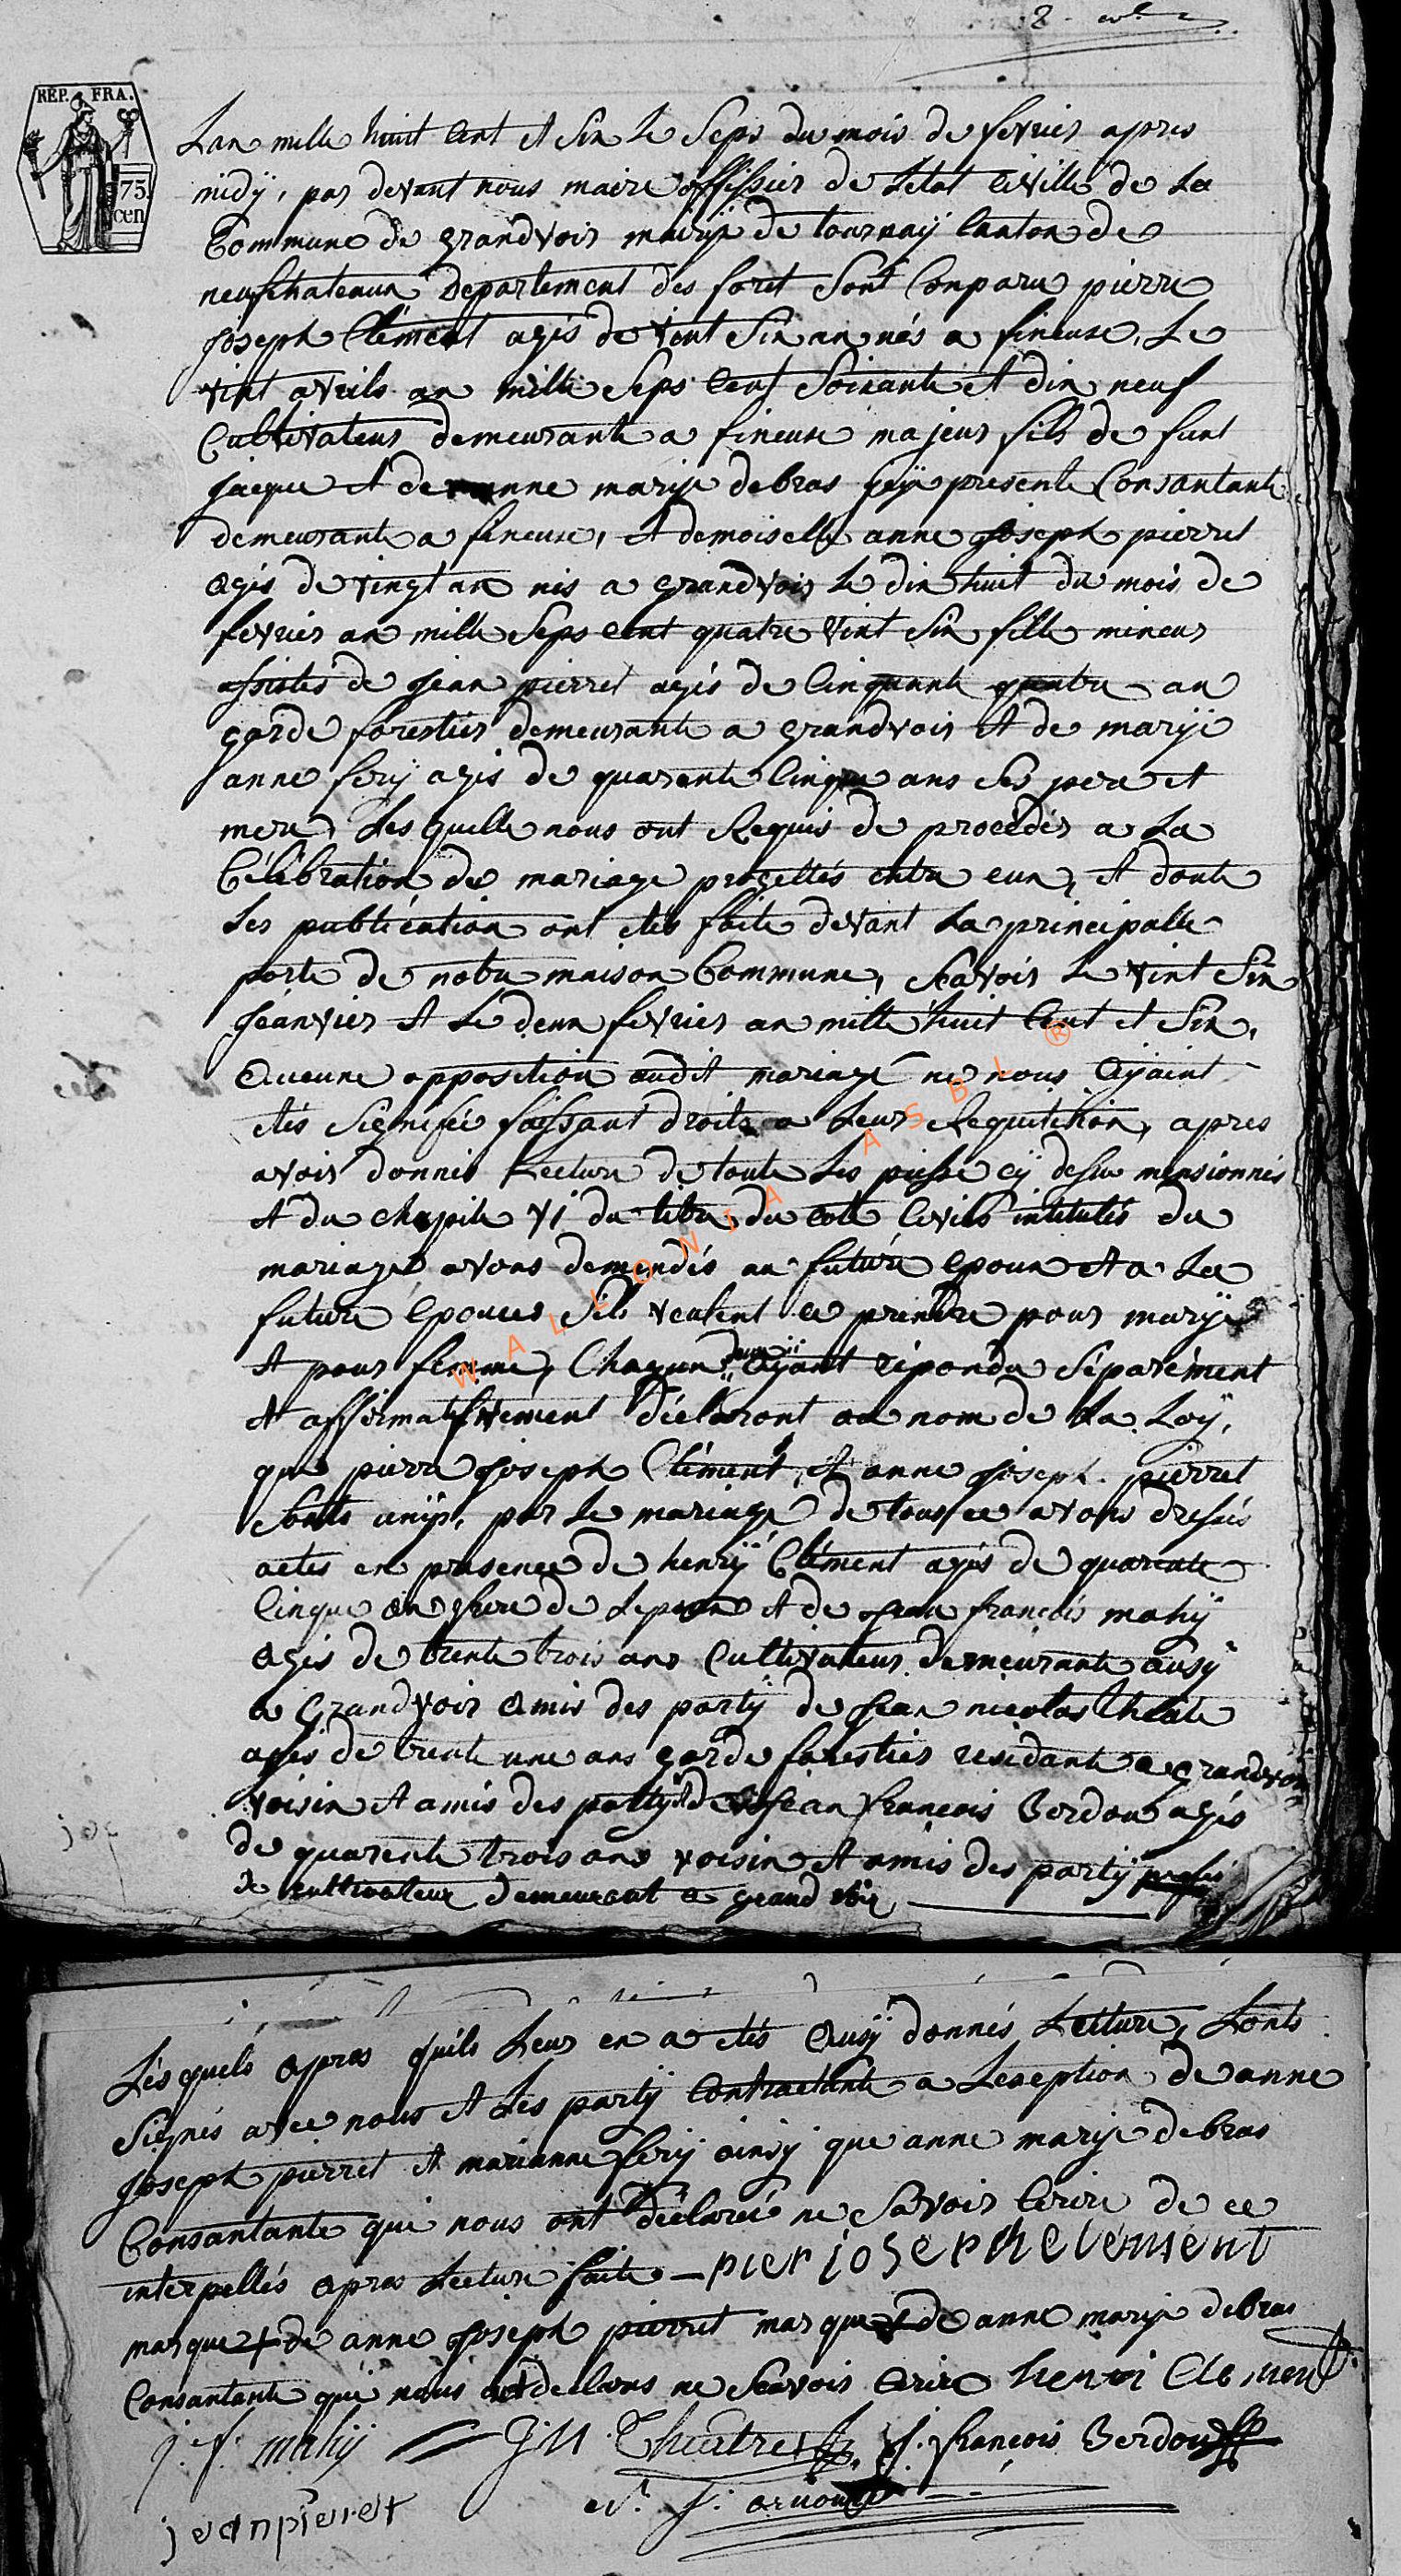 REP. FRA.
75
cen
Lan mille huit Cent et Six Le Seps du mois de fevrier apres
midÿ, par devant nous maire offissier de Letat Civille de La
Commune de grandvoir mairÿe de tournaÿ Canton de
neufchateaux Departement des foret Sont Conparu pierre
Joseph Clément agis de vent Six an nés a fineuse, Le
vint avrils an mille Seps Cent Soixante et dix neuf
Cultivateur demeurante a fineuse majeur fils de funt
Jacque et de anne marije debras icÿ presente Consantante
demeurante a fineuse, et demoiselle anne Joseph pierret
agis de vingt an nis a grandvoir Le dix huit du mois de
fevrier an mille Seps cent quatre vint Six fille mineur
assistés de Jean pierret agés de Cinquante quatre an
garde forestier demeurante a grandvoir et de marije
anne ferÿ agis de quarante Cinque ans Ses pere et
mere, Les quelle nous ont Requis de proceder a La
Célébration de mariage projettés entre eux, et donte
Les publication ont étés faite devant La principalle
porte de notre maison Commune, Scavoir Le vint Six
Jeanvier et Le deux fevrier an mille huit Cent et Six,
Aucune opposition audit mariage ne nous Aÿaint
étés Signifié faissant droits a Leur Requitition, apres
avoir donnés Lecture de toute Les pieße cÿ dessu mensionnés
et du chapite VI du titre du code Civils intitulés du
mariage avons demendés au future Epoux et a La
future Epouce Sils veulent ce prendre pour marÿe
et pour femme, Chaqun deux Aÿant répondu Séparément
et affirmatifvement Déclaront au nom de La Loÿ,
que pierre Joseph Clément, et anne Joseph pierret
Sonts unÿs, par Le mariage de tous ce avons dressés
actes en presence de henrÿ Clément agés de quarente
Cinque an frere de Lepoux et de Jean francois mahÿ
agis de trente trois ans Cultivateur demeurante ausÿ
a Grandvoir Amis des partÿ de Jean nicolas theate
agés de trente une ans garde forestier residante a grandvoir
voisin et amis des partÿ et de Jean francois Berdou agés
de quarente trois ans voisin et amis des partÿ
de cultivateur demeurant a grand voir
Lésquels apres quils Leur en a étés Ausÿ donnés Lecture, Lonts
Signés avec nous et Les partÿ Contractante a Lexeption de anne
Joseph pierret et marianne ferÿ ainsÿ que anne marije debras
Consantante qui nous ont déclaréé ne Savoir Ecrire de ce
interpellés apres Lecture faite — pier joseph clément
marque + de anne Joseph pierret marque + de anne marije debras
Consantante qui nous ont declarés ne Scavoir Ecrire henri Clement
j. f. mahÿ J N Theatre J. françois Berdou
jean pieret N. J. arnould
WALLONIA ASBL ®